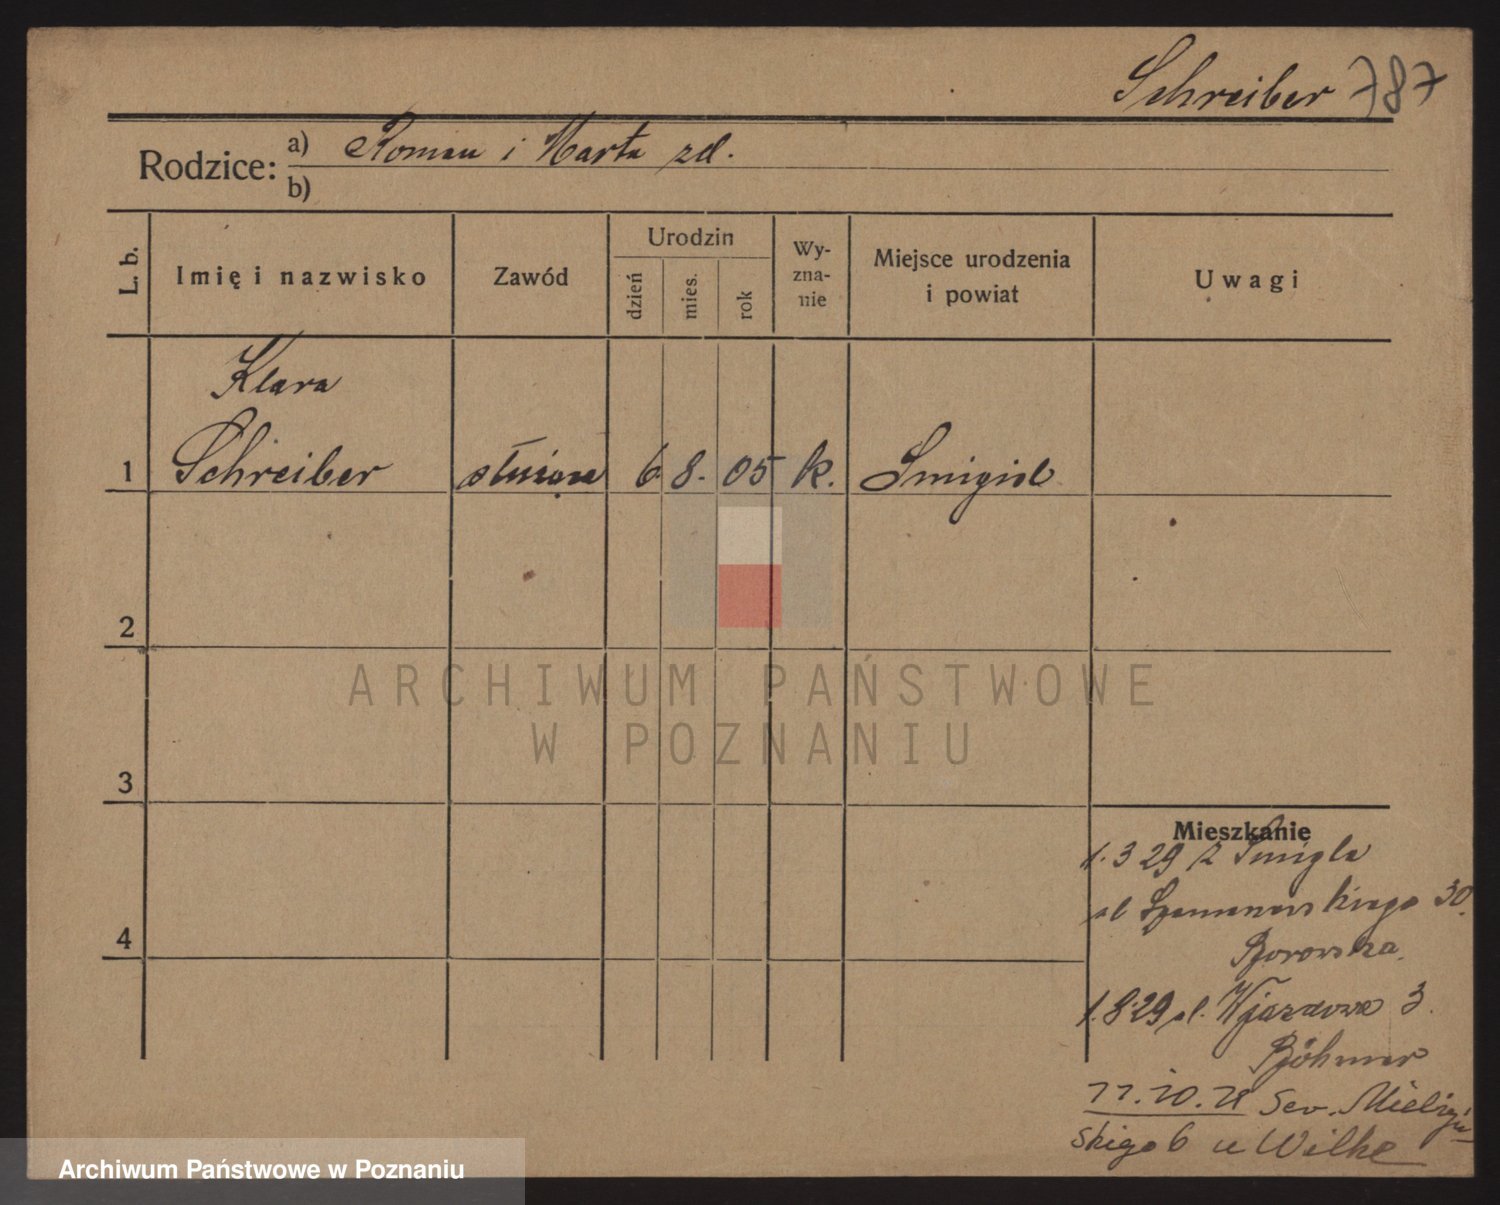 Schreiber 787
Rodzice: a) Roman i Marta zd.
b)
L. b. Imię i nazwisko Zawód Urodzin dzień mies. rok Wy-zna-nie Miejsce urodzenia i powiat Uwagi
Klara
1 Schreiber służąca 6 8. 05 k. Smigiel
2
3
4
Mieszkanie
1. 3 29 z Smigla
ul 30.
Borowska.
1.8.29 ul. Wjazdowa 3.
Böhmer
11.10. Sew. Mielżyń-
skiego 6 u Wilke
ARCHIWUM PAŃSTWOWE
W POZNANIU
Archiwum Państwowe w Poznaniu